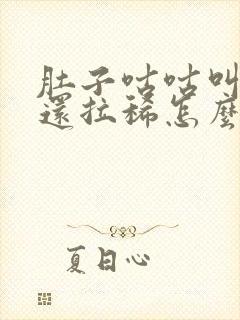 肚子咕咕叫
還拉稀怎麼
夏日心